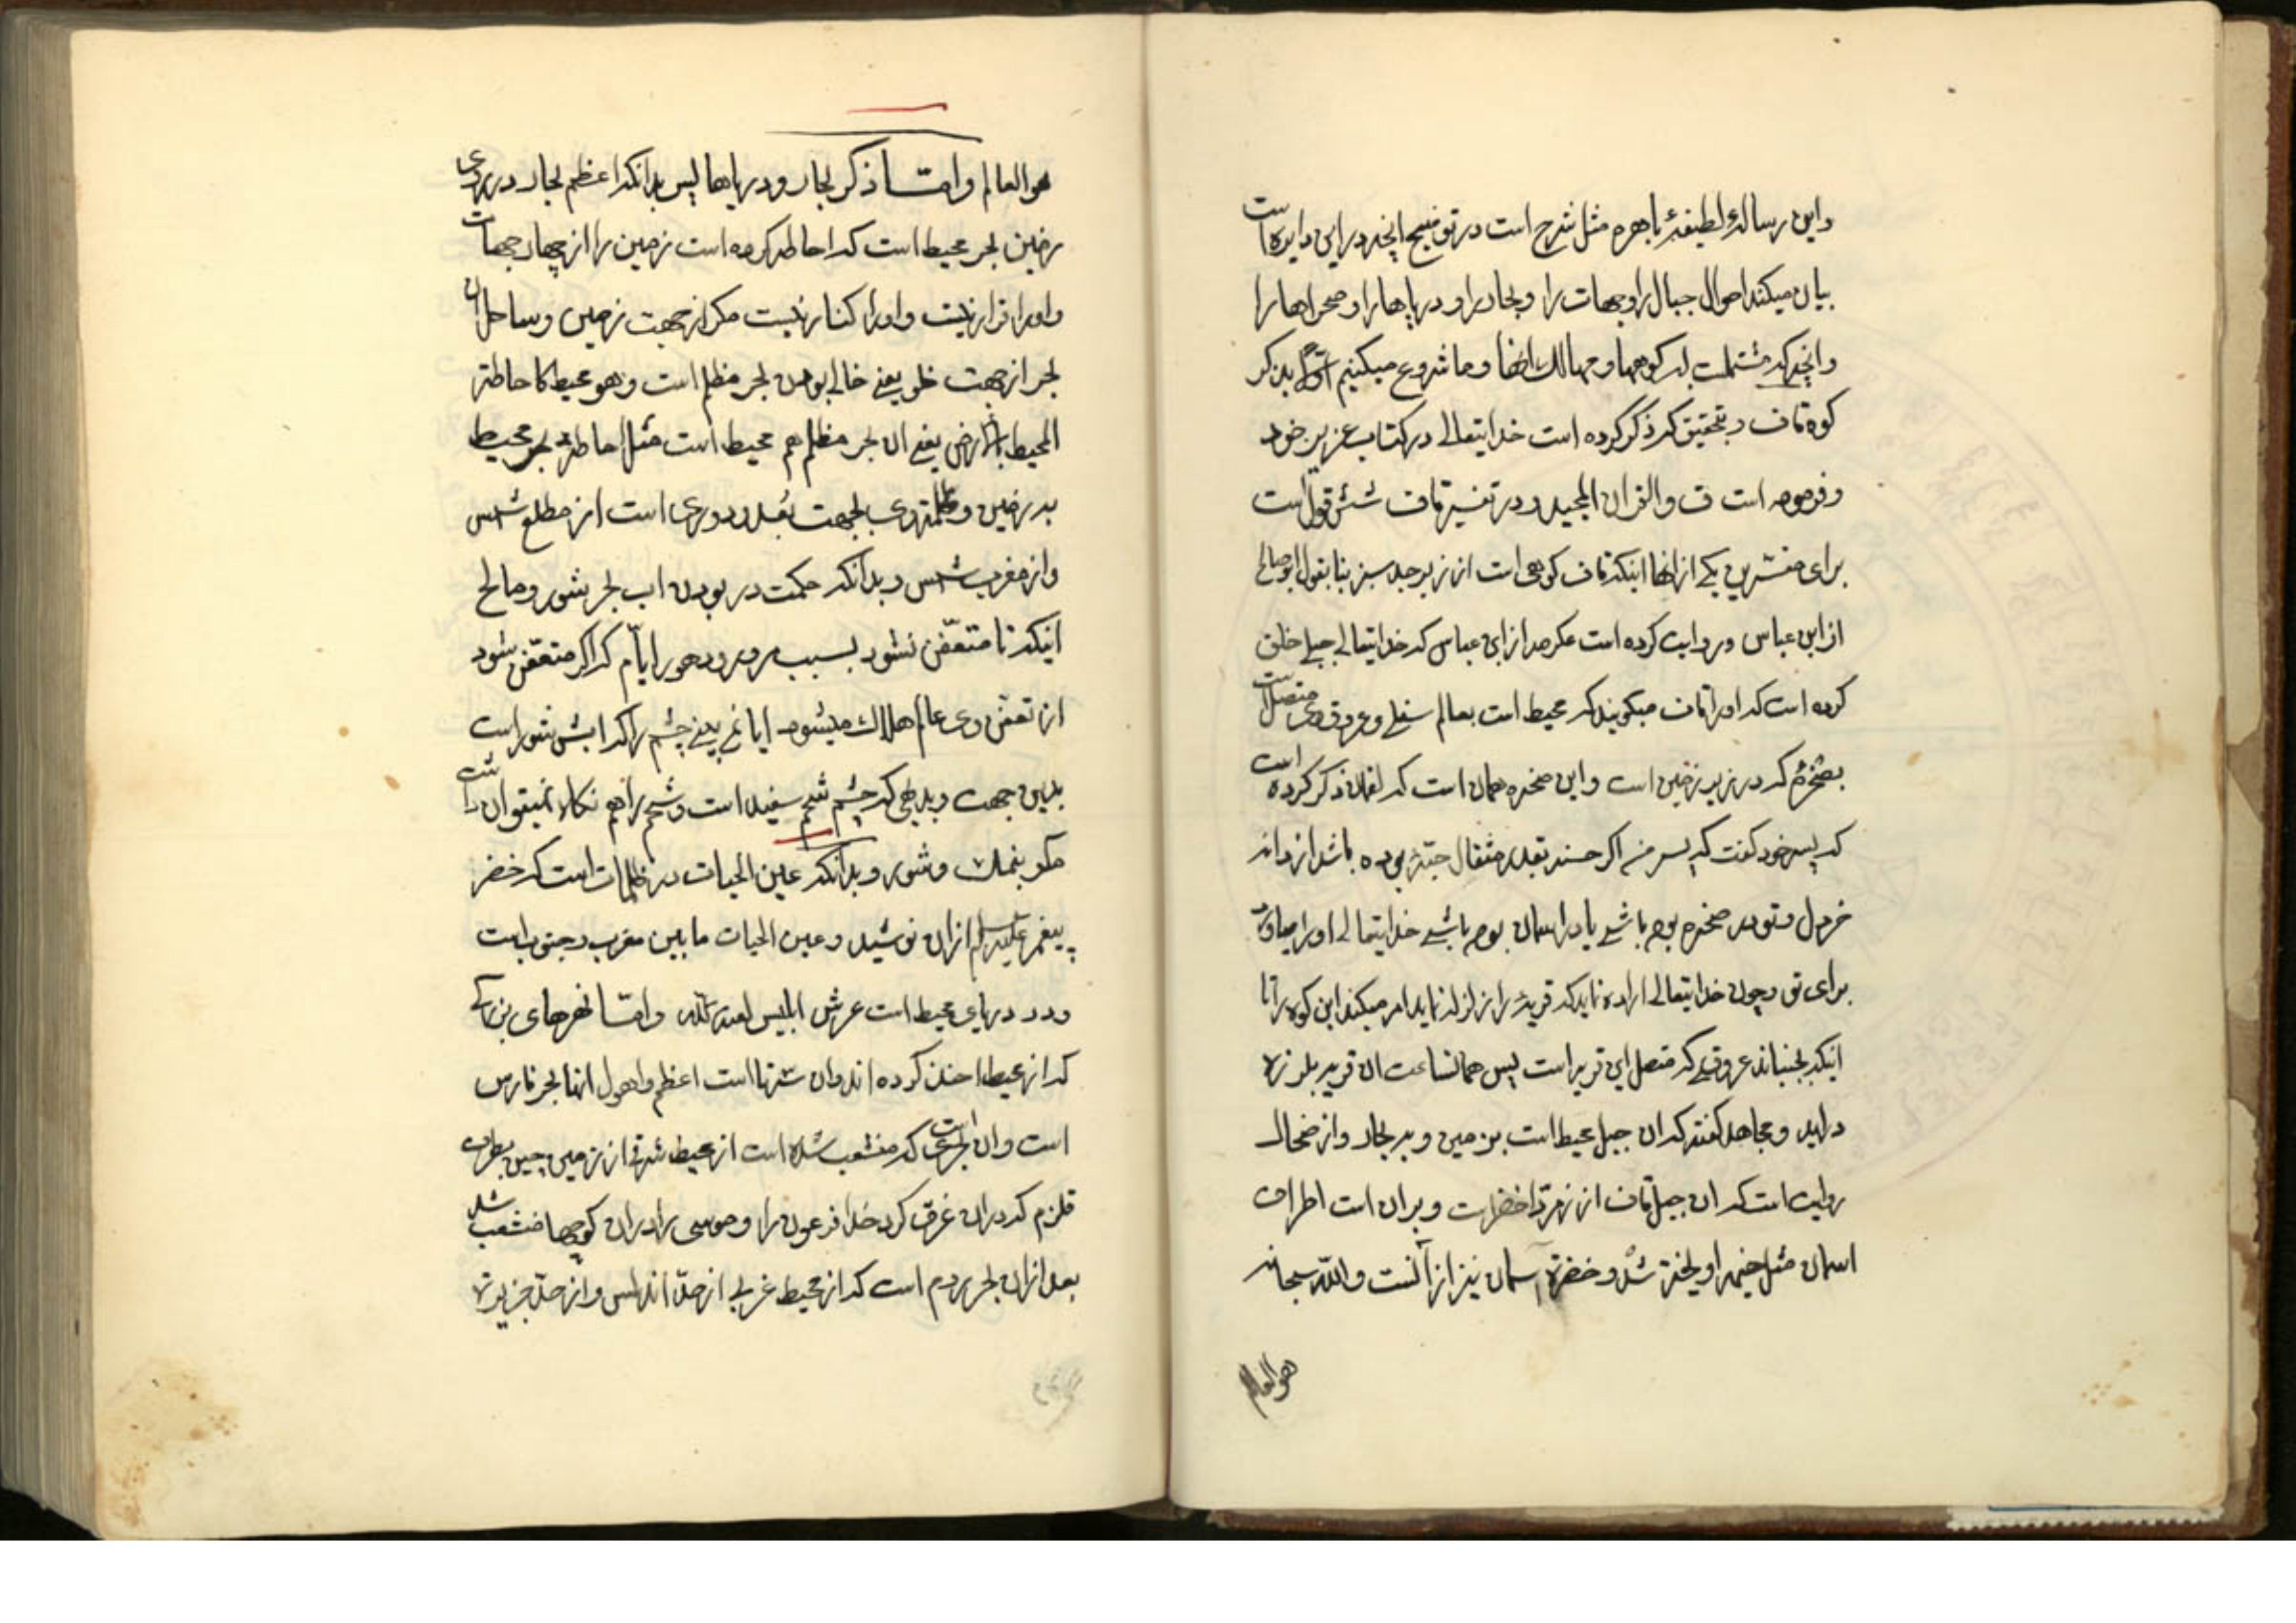 واین رسالهٔ لطیفهٔ باهره مثل شرح است در توضیح انچه در این دایره است
بیان میکند احوال جبال را وجهات را وبحار را ودریاهارا وصحراهارا
وانچه که مشتملست بر کوهها وممالک انها وما شروع میکنیم اوّلا بذکر
کوه قاف وبتحقیق که ذکر کرده است خدایتعالی در کتاب عزیز خود
وفرموده است ق والقران المجید ودر تفسیر قاف شش قول است
برای مفسّرین یکی از انها اینکه قاف کوهی است از زبرجد سبز بنا بقول ابوصالح
از ابن عباس وروایت کرده است عکرمه از ابن عباس که خدایتعالی جبلی خلق
کرده است که اورا قاف میکویند که محیط است بعالم سفلی وعروق وی متصل است
بصخرهٔ که در زیر زمین است واین صخره همان است که لقمان ذکر کرده است
که بپسر خود کفت که ای پسر من اکر حسنه بقدر مثقال حبّهٔ بوده باشد از دانه
خردل وتو در صخره بوده باشی یا در اسمان بوده باشی خدایتعالی اورا میاورد
برای تو وچون خدایتعالی اراده نماید که قریهٔ را زلزله نماید امر میکند این کوه را تا
اینکه بجنباند عروقی که متصل این قریه است پس همانساعت ان قریه بلرزه
دراید ومجاهد کفته که ان جبل محیط است بزمین وبر بحار واز ضحاک
روایت است که ان جبل قاف از زمرّد اخضرست وبران است اطراف
اسمان مثل خیمه اویخته شده وخضرة اسمان نیز از آنست والله سبحانه
هو العالم
هو العالم وامّا ذکر بحار ودریاها پس بدانکه اعظم بحار در روی
زمین بحر محیط است که احاطه کرده است زمین را از چهار جهات
واورا قرار نیست واورا کنار نیست مکر از جهت زمین وساحل ان
بحر از جهت خلو یعنی خالی بودن بحر مظلم است وهو محیط کاحاطة
المحیط بالارض یعنی ان بحر مظلم هم محیط است مثل احاطهٔ بحر محیط
بر زمین وظلمة وی بجهت بُعد ودوری است از مطلع شمس
واز مغرب شمس وبدانکه حکمت در بودن اب بحر شور ومالح
اینکه تا متعفّن نشود بسبب مرور دهور ایّام که اکر متعفّن شود
از تعفّن وی عالم هلاک میشود ایا نمی بینی چشم را که ابش شور است
بدین جهت وبدرستی که چشم شحم سفید است وشحم را هم نکاه نمیتوان داشت
مکر بنمک وشور وبدانکه عین الحیات در ظلمات است که خضر
پیغمبر علیه السلام ازان نوشید وعین الحیات مابین مغرب وجنوب است
ودر دریای محیط است عرش ابلیس لعنه الله وامّا نهرهای بزرک
که از محیط اخذ کرده اند وان ستّها است اعظم واهول انها بحر فارس
است وان بحری است که منشعب شده است از محیط شرقی از زمین چین بطرف
قلزم که دران غرق کرد خدا فرعون را وموسی را دران کوچها منشعب شد
بعد ازان بحر روم است که از محیط غربی از حدّ اندلس واز حدّ جزیرهٔ